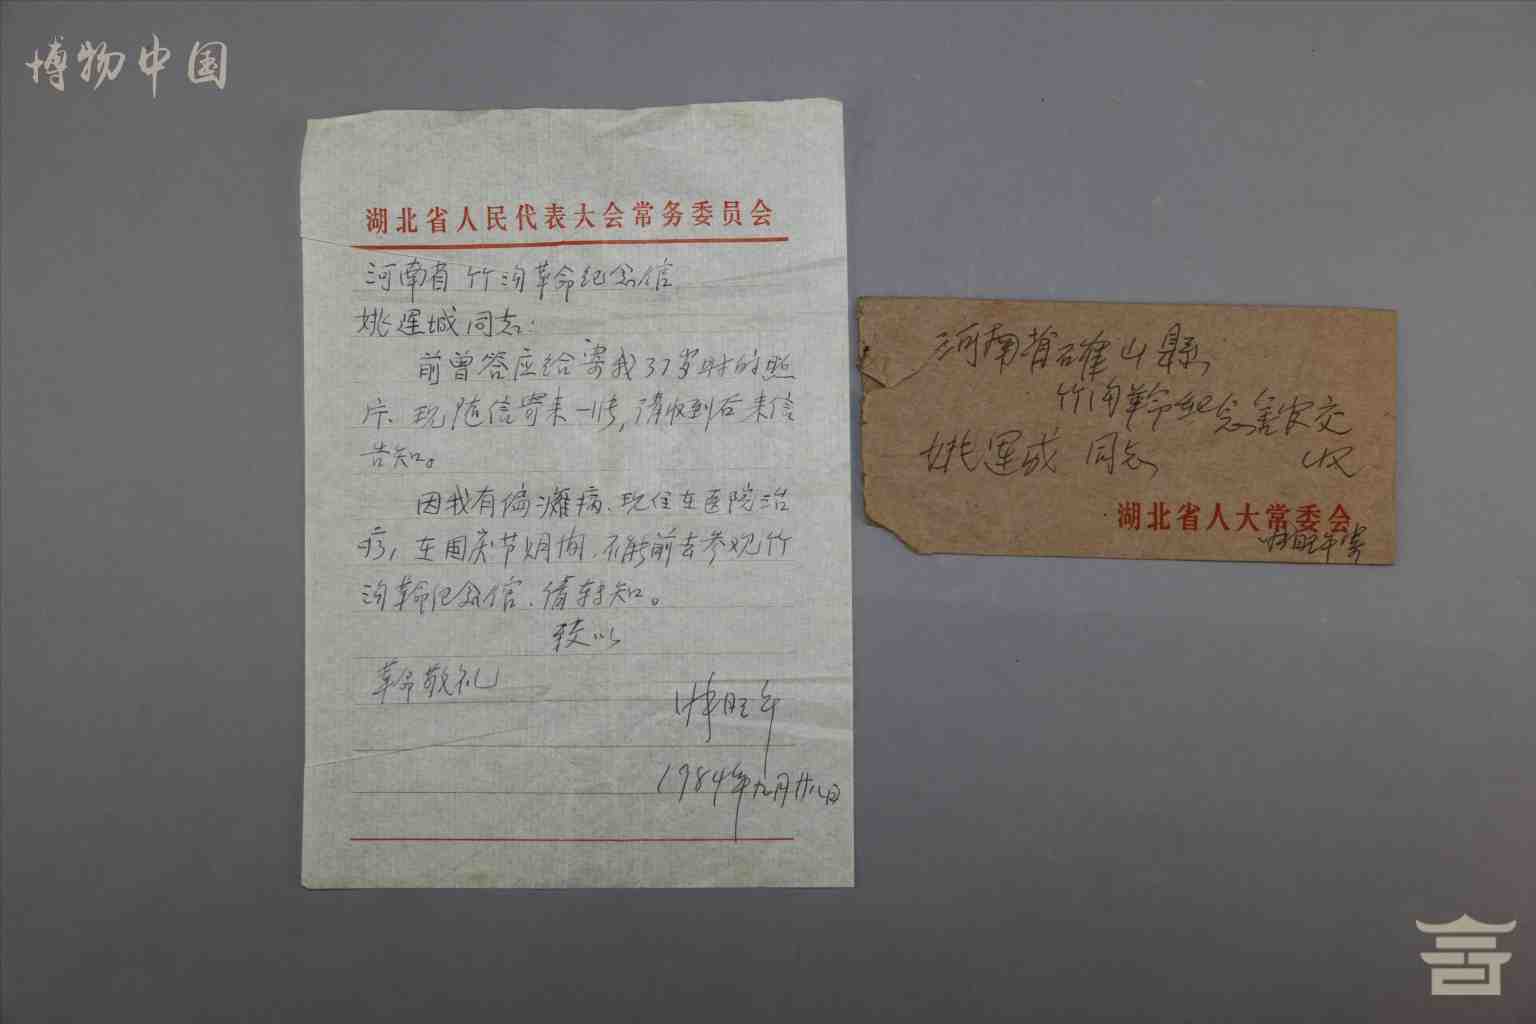 博物中国
湖北省人民代表大会常务委员会
河南省竹沟革命纪念馆
姚运城同志:
前曾答应给寄我37岁时的照
片、现随信寄来一张,请收到后来信
告知。
因我有偏瘫病、现住在医院治
疗,在国庆节期间、不能前去参观竹
沟革命纪念馆、请转知。
致以
革命敬礼
1984年九月廿八日
河南省确山县
竹沟革命纪念馆交
姚运成 同志 收
湖北省人大常委会